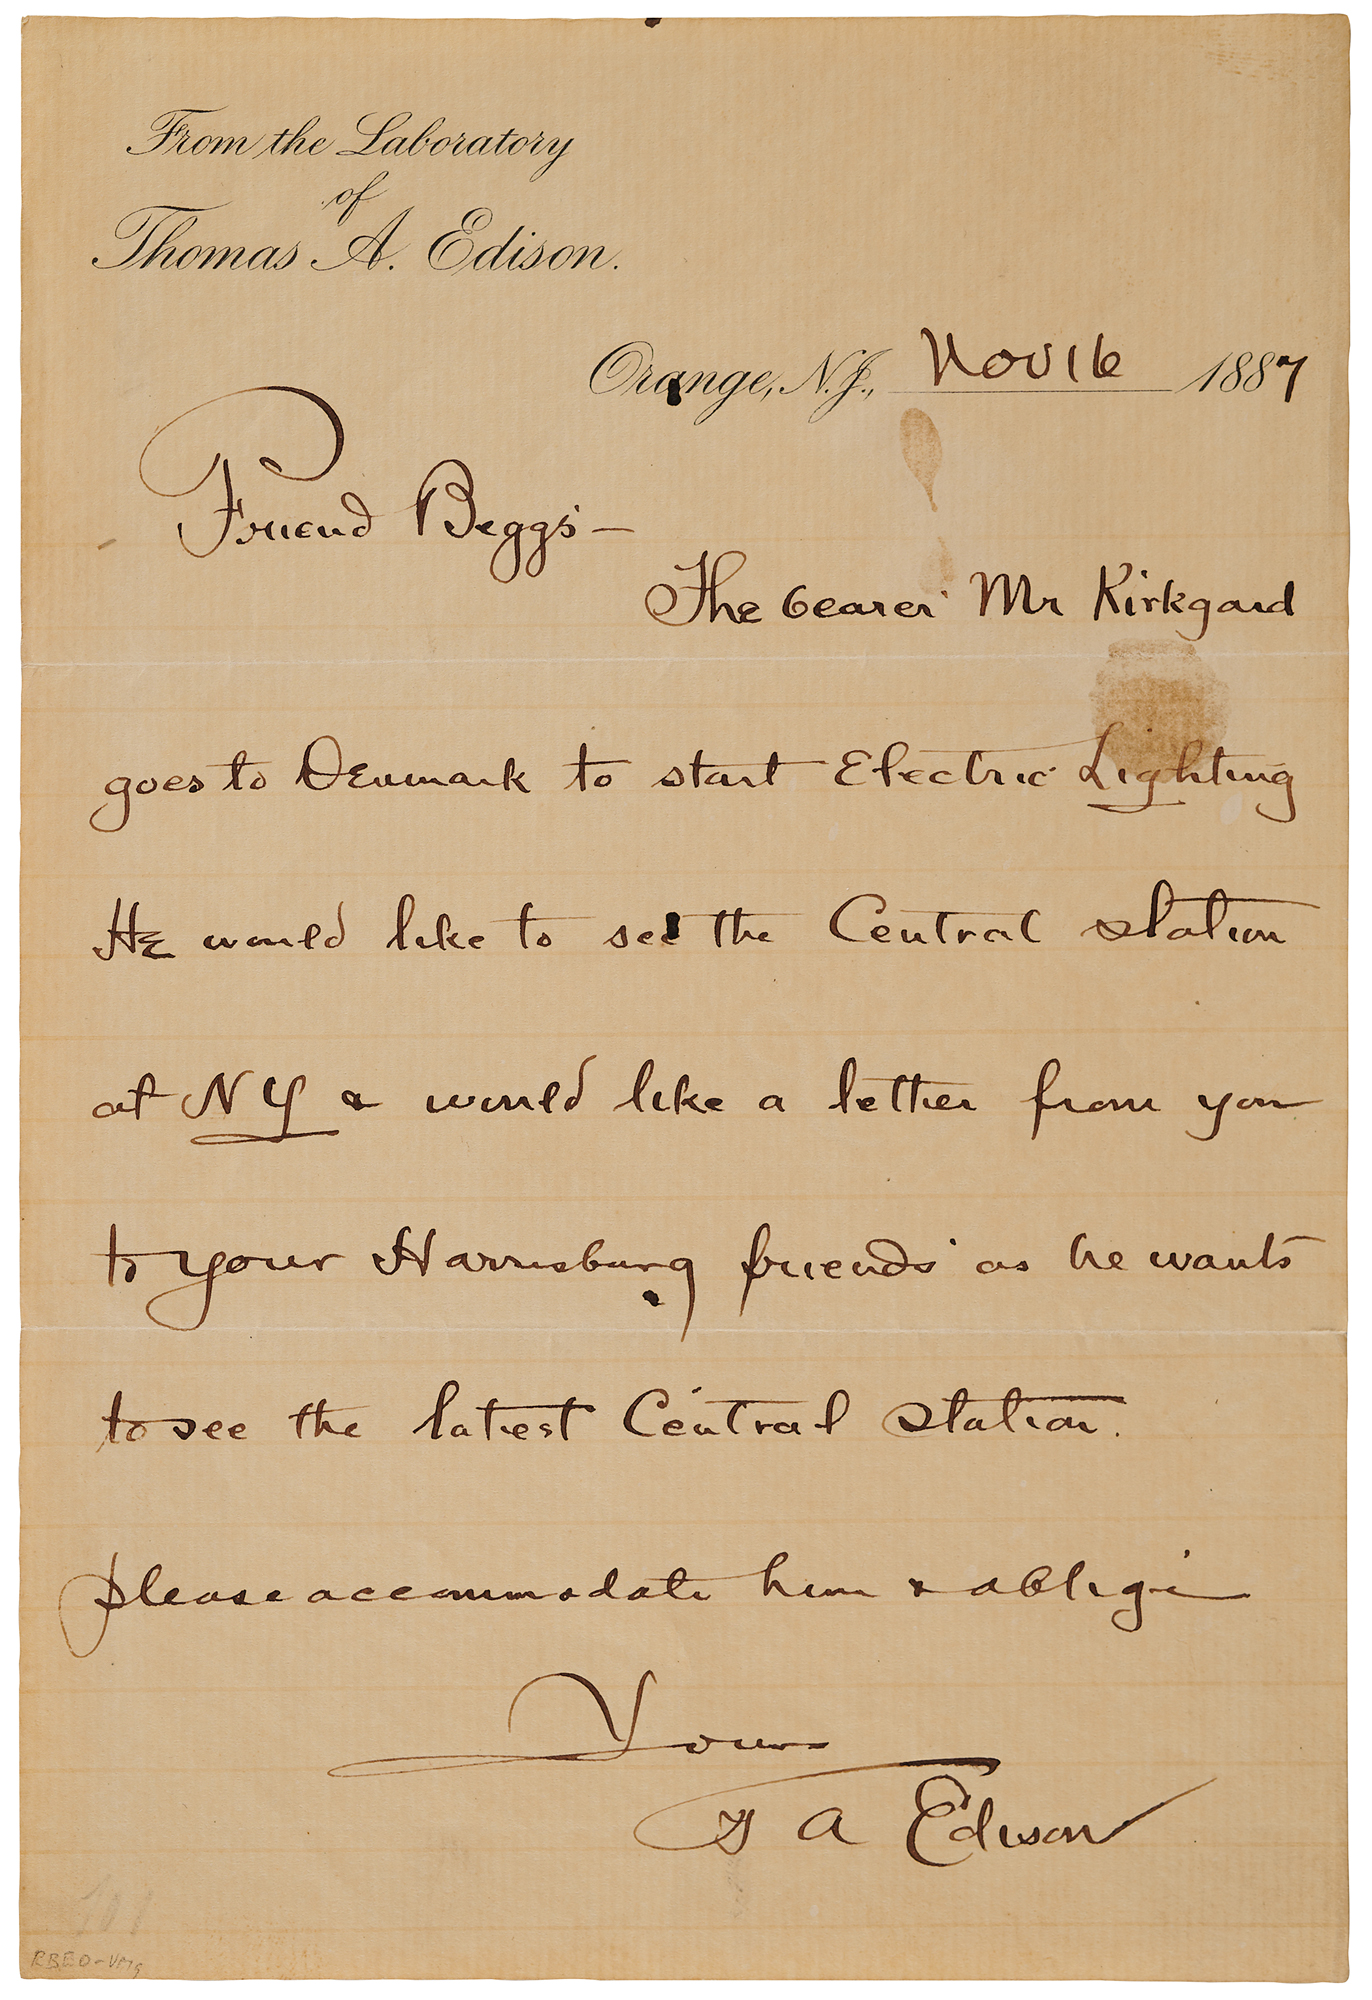 From the Laboratory
of
Thomas A. Edison.
Orange, N.J., Nov 16 1887
Friend Beggs —
The bearer Mr Kirkgard
goes to Denmark to start Electric Lighting
He would like to see the Central station
at NY & would like a letter from you
to your Harrisburg friends as he wants
to see the latest Central station.
please accommodate him & oblige
Yours
T A Edison